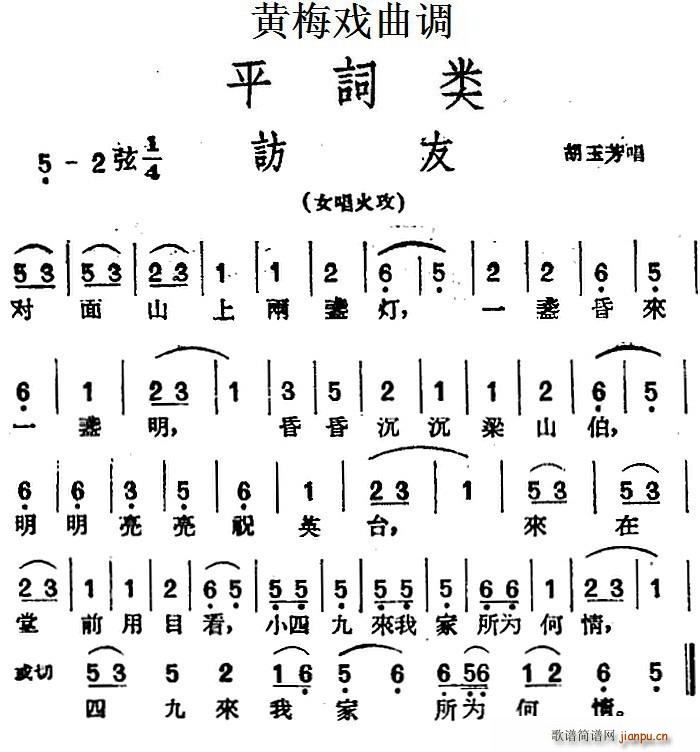 黄梅戏曲调
平詞类
5 - 2 弦 1/4 訪友 胡玉芳唱
(女唱火攻)
5 3 | 5 3 | 2 3 | 1 | 1 | 2 | 6 | 5 | 2 | 2 | 6 | 5 |
对面山上兩盞灯，一盞昏來
6 | 1 | 2 3 | 1 | 3 | 5 | 2 | 1 | 1 | 2 | 6 | 5 |
一盞明，昏昏沉沉梁山伯，
6 | 6 | 3 | 5 | 6 | 1 | 2 3 | 1 | 5 3 | 5 3 |
明明亮亮祝英台，來在
2 3 | 1 | 1 | 2 | 6 5 | 5 5 | 5 | 5 5 | 5 | 6 6 | 1 | 2 3 | 1 |
堂前用目看，小四九來我家所为何情，
或切 5 3 5 2 1 6 5 6 6 56 1 2 6 5
四九來我家所为何情。
歌谱简谱网 jianpu.cn